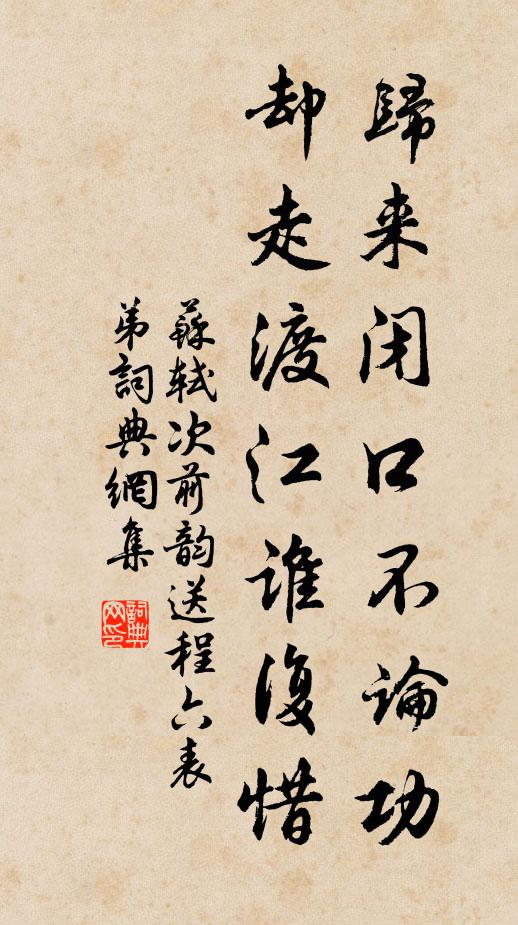 歸来闭口不論功
却走渡江谁復惜
蘇軾次前韵送程六表
弟詞典網集
詞典
网印